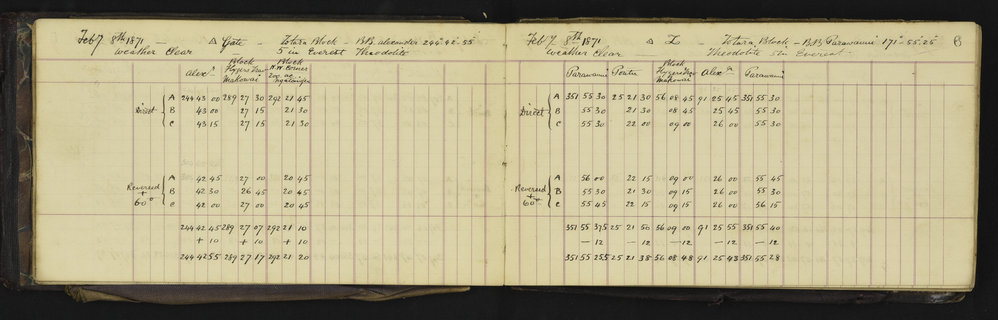 Feb 7 8th 1871 — Δ Gate — Totara Block — BB. Alexander 244° 42' 55"
Weather Clear 5 in Everest Theodolite
Alexr Block Flyers Trav Makowai Block N.W. Corner
A 244 43 00 289 27 30 292 21 45
Direct B 43 00 27 15 21 30
C 43 15 27 15 21 30
A 42 45 27 00 20 45
Reversed + 60° B 42 30 26 45 20 45
C 42 00 27 00 20 45
244 42 45 289 27 07 292 21 10
+ 10 + 10 + 10
244 42 55 289 27 17 292 21 20
Feb 7 8th 1871 Δ Z — Totara Block — BB Parawanui 171° 55' 25" 6
Weather Clear Theodolite 5 in Everest
Parawanui Poutu Block Flyers Trav Makowai Alexr Parawanui
A 351 55 30 25 21 30 56 08 45 91 25 45 351 55 30
Direct B 55 30 21 30 08 45 25 45 55 30
C 55 30 22 00 09 00 26 00 55 30
A 56 00 22 15 09 00 26 00 55 45
Reversed + 60° B 55 30 21 30 09 15 26 00 55 30
C 55 45 22 15 09 15 26 00 56 15
351 55 37.5 25 21 50 56 09 00 91 25 55 351 55 40
— 12 — 12 — 12 — 12 — 12
351 55 25.5 25 21 38 56 08 48 91 25 43 351 55 28